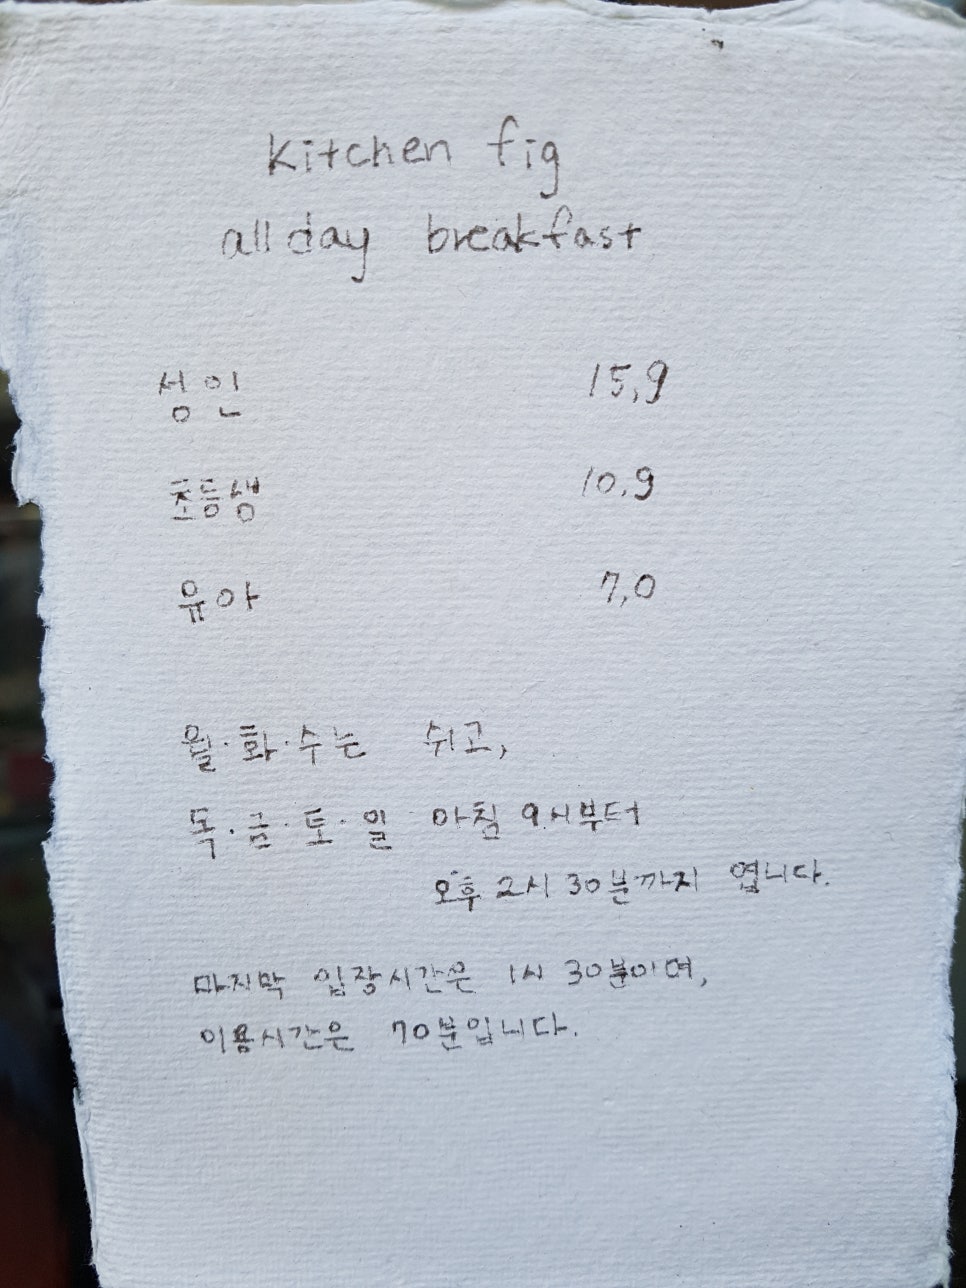 kitchen fig
all day breakfast
성인 15,9
초등생 10,9
유아 7,0
월·화·수는 쉬고,
목·금·토·일 아침 9시부터
오후 2시 30분까지 엽니다.
마지막 입장시간은 1시 30분이며,
이용시간은 70분입니다.